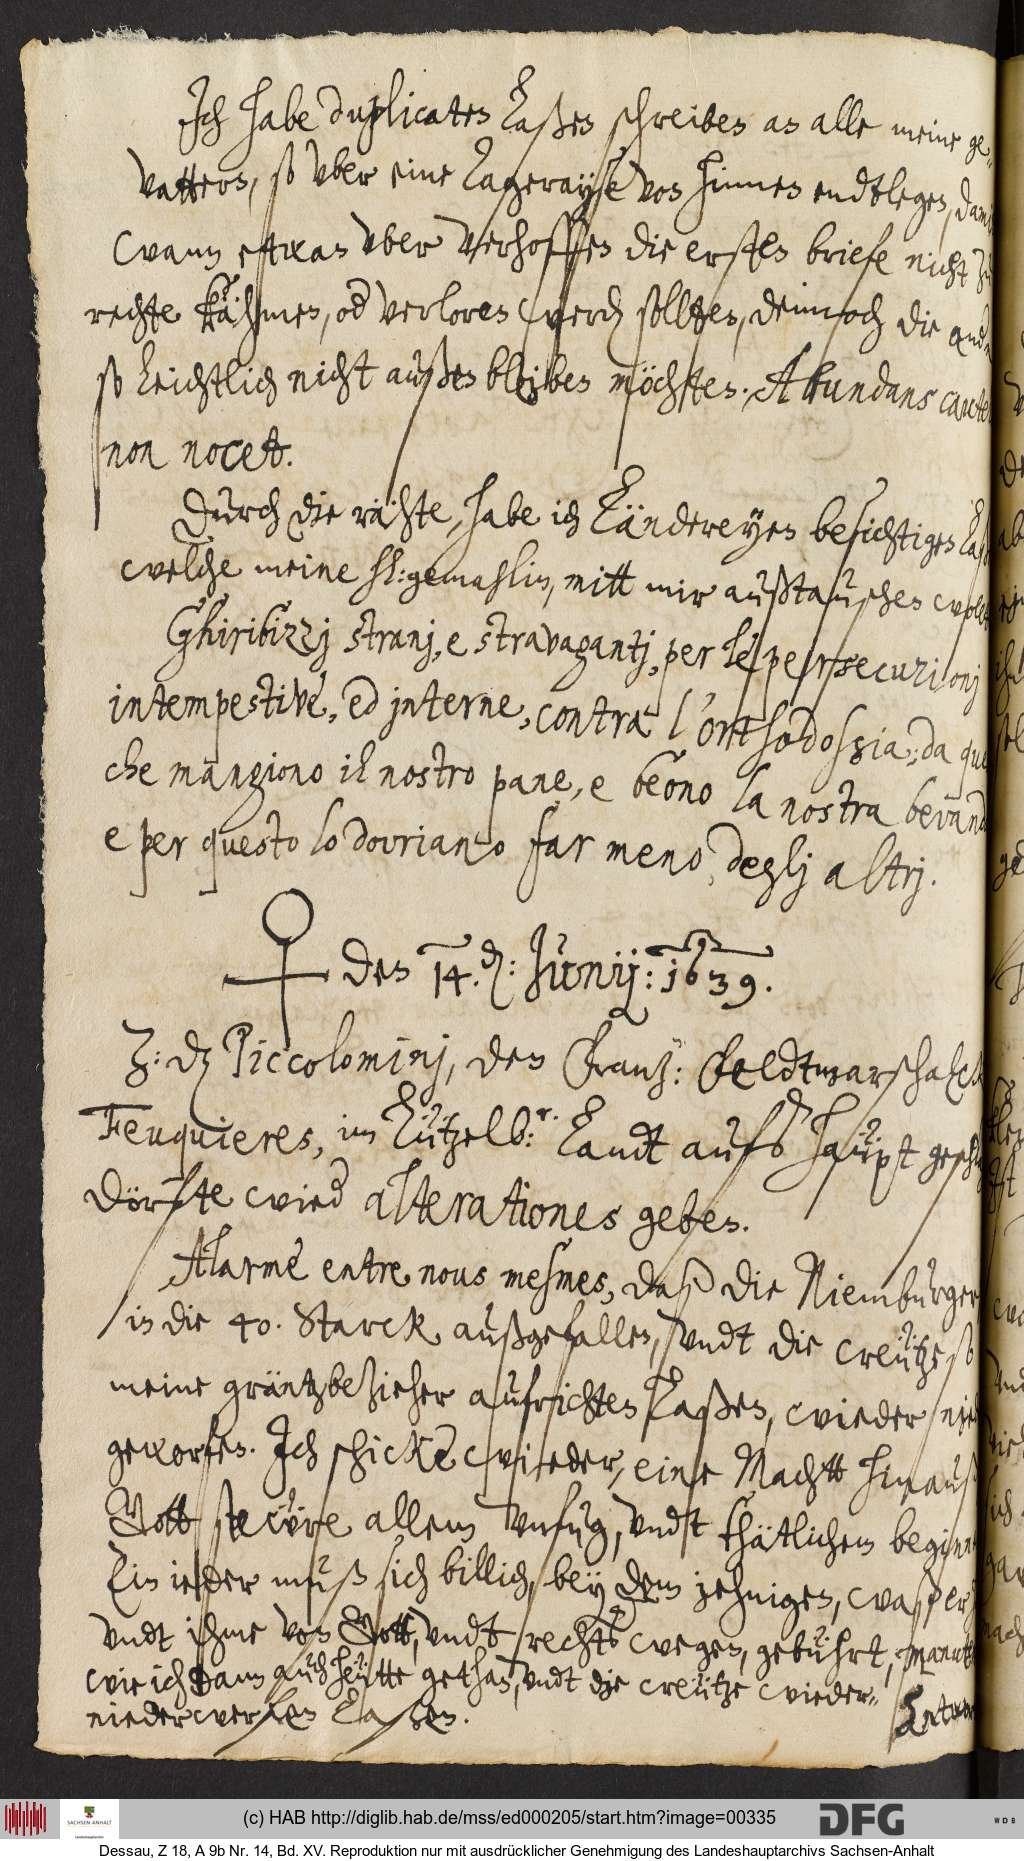 Ich habe duplicaten laßen schreiben an alle meine ge-
vattern, so vber eine Tagerayse von hinnen endtlegen, dam
wann etwan vber verhoffen die ersten briefe nicht zu
rechte kähmen, od verloren werdn sollten, dennoch die and
so leichtlich nicht außen bleiben möchten. Abundans caute
non nocet.
Durch die rähte, habe ich Ländereyen besichtigen laß
welche meine hl: gemahlin, mitt mir außtauschen wolt
Ghiribizzj stranj, e stravagantj, per le persecuzionj
intempestive, ed jnterne, contra l'orthodossia; da que
che mangiono il nostro pane, e beono la nostra bevand
e per questo lo dovriano far meno, deglj altrj.
♀ den 14. d: Junij: 1639.
Z: dz Piccolominj, den Franz: Feldtmarschalck
Feuquieres, im Lützelb:r. Landt aufs häupt geschl
dörfte wied alterationes geben.
Alarme entre nous mesmes, daß die Niemburger
in die 40. Starck außgefallen, vndt die creütze so
meine gräntzbezieher aufrichten laßen, wieder nied
geworfen. Ich schicke wieder, eine Machtt hinauß
Gott stewre allem vnfug, vndt thätlichem beginn
Ein ieder muß sich billich, bey dem jehnigen, waß er
vndt ihme von Gott, vndt rechts wegen, gebührt, manut
wie ich dann auch heütte gethan, vndt die creütze wieder-
niederwerfen laßen.
Antwor
(c) HAB http://diglib.hab.de/mss/ed000205/start.htm?image=00335
SACHSEN-ANHALT
Landeshauptarchiv
DFG
WDB
Dessau, Z 18, A 9b Nr. 14, Bd. XV. Reproduktion nur mit ausdrücklicher Genehmigung des Landeshauptarchivs Sachsen-Anhalt